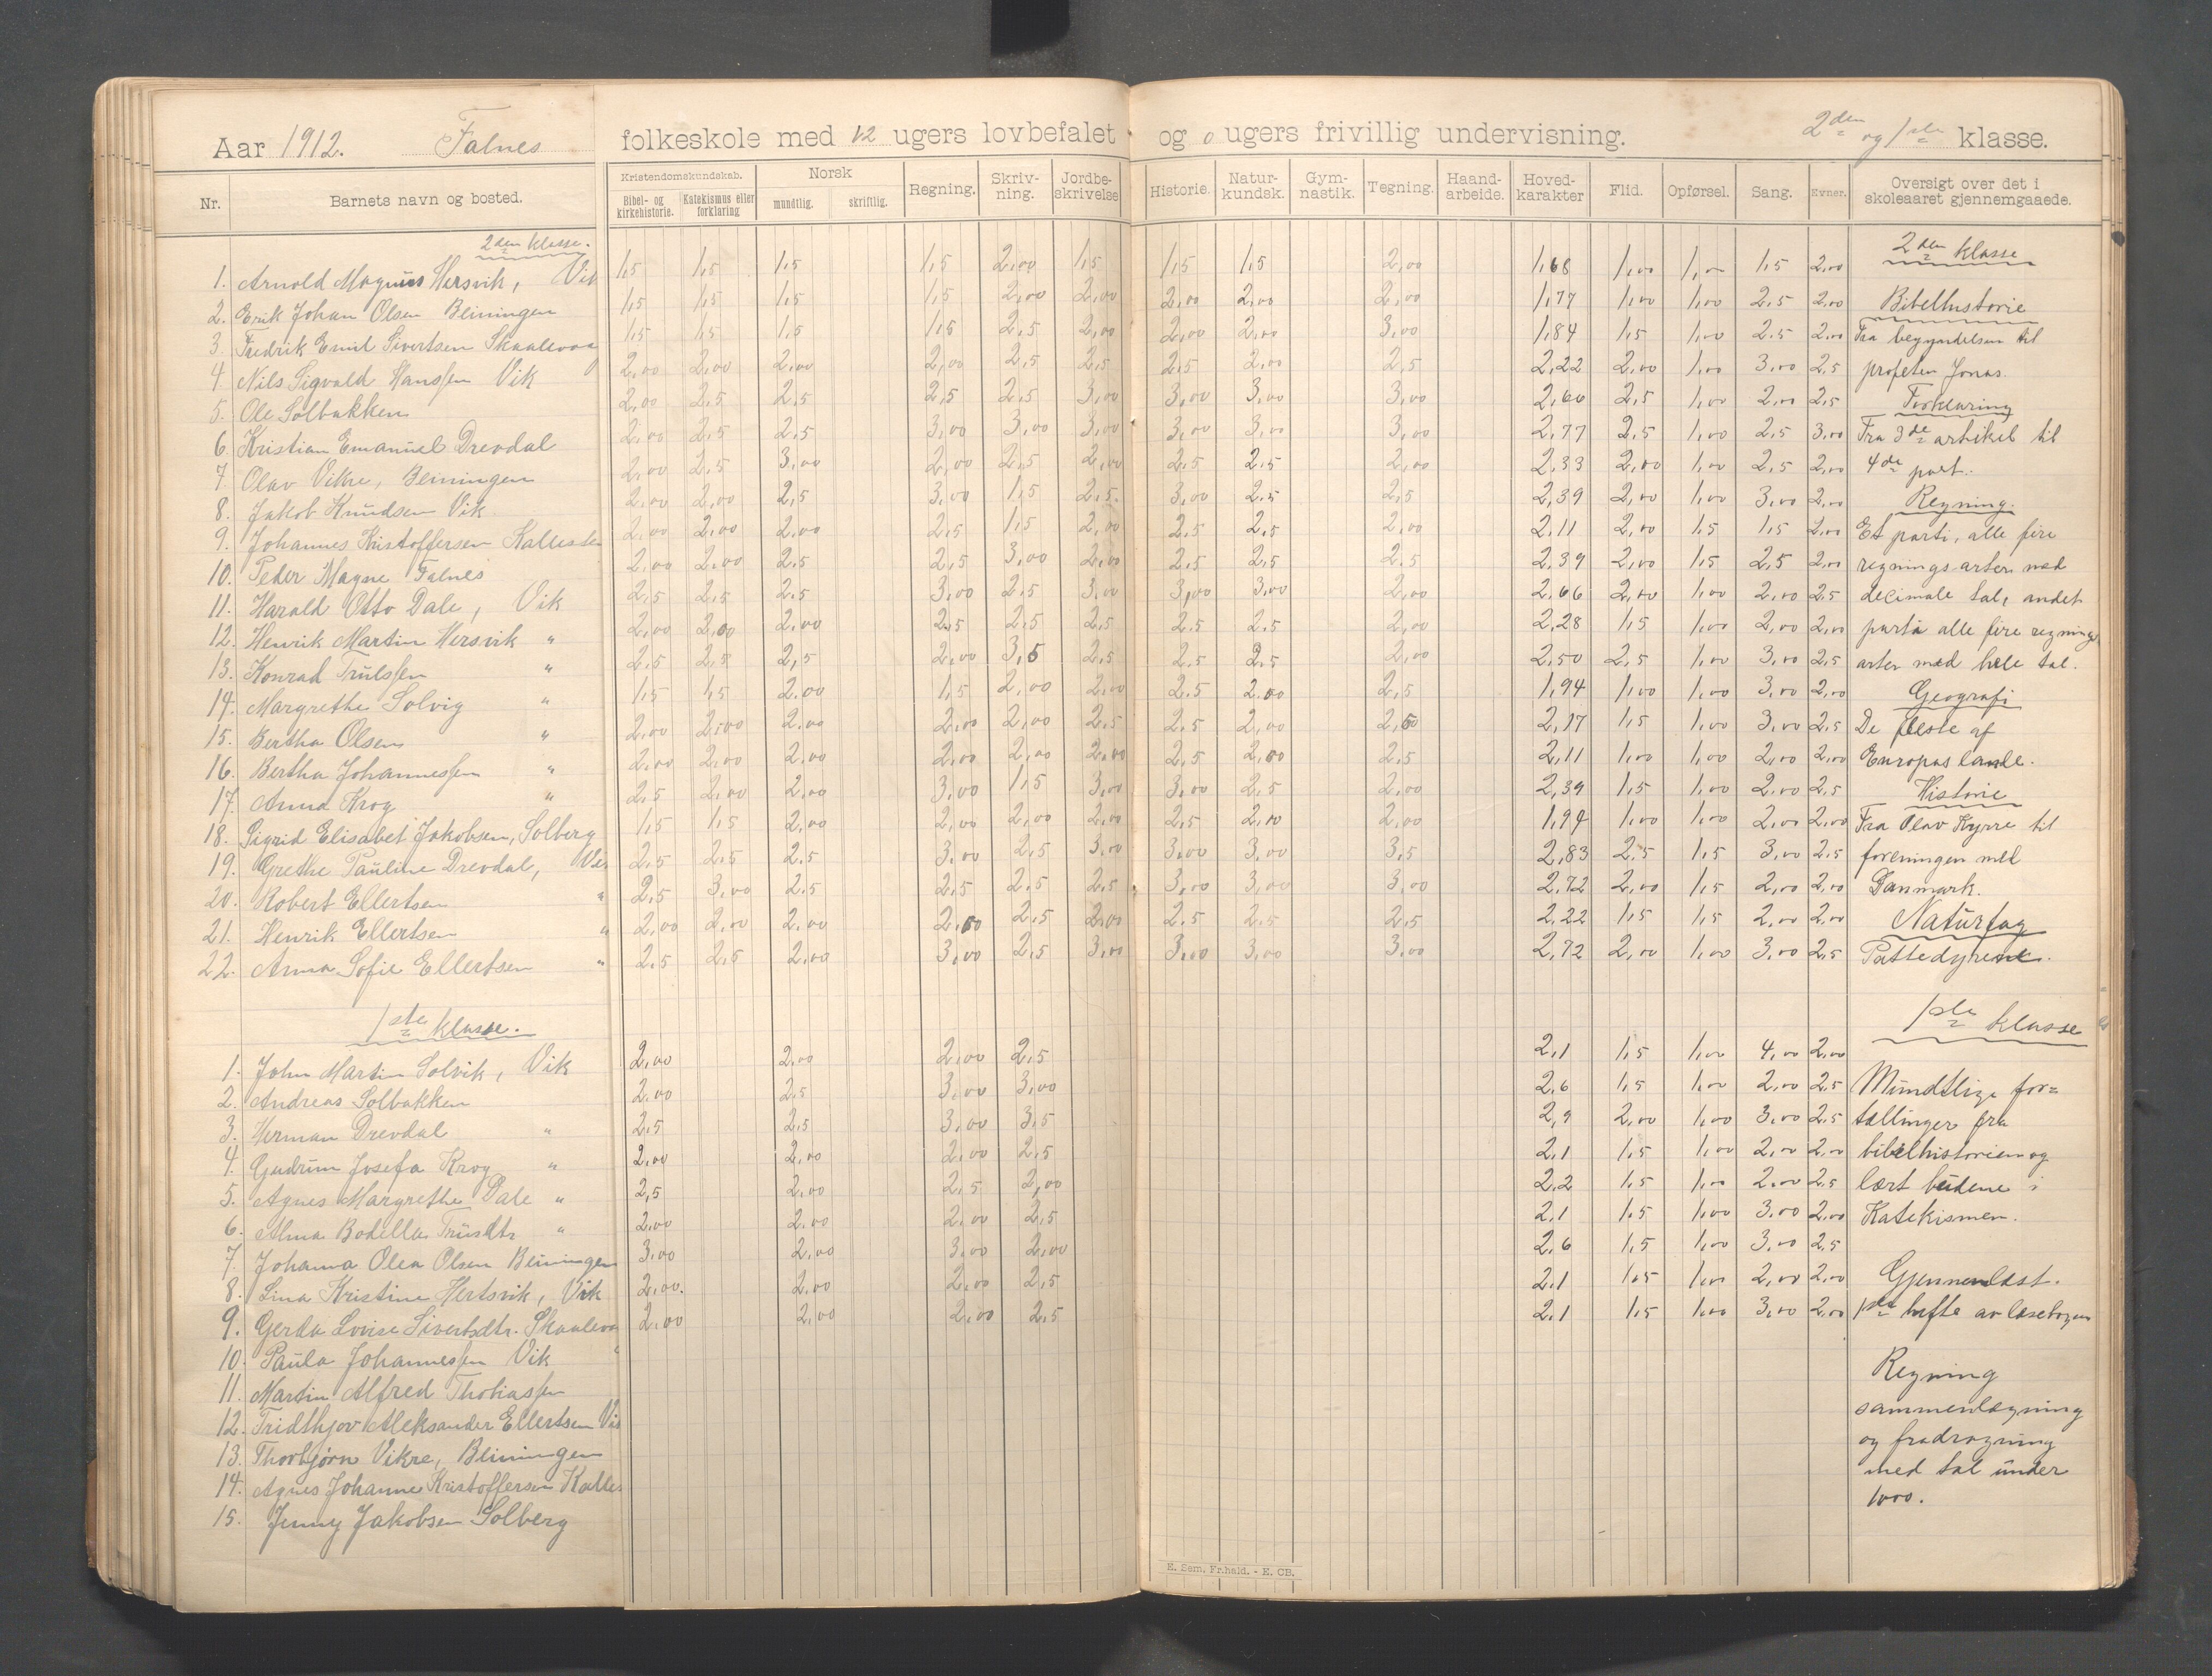 Aar 1912. Falnes folkeskole med 12 ugers lovbefalet og 0 ugers frivillig undervisning. 2den og 1ste klasse.
Nr. Barnets navn og bosted. Kristendomskundskab. Bibel- og kirkehistorie. Katekismus eller forklaring Norsk mundtlig. skriftlig. Regning. Skrivning. Jordbeskrivelse Historie. Naturkundsk. Gymnastik. Tegning. Haandarbeide. Hovedkarakter Flid. Opførsel. Sang. Evner. Oversigt over det i skoleaaret gjennemgaaede.
2den klasse. 2den klasse
1. Arnold Magnus Hersvik, Vik 1,5 1,5 1,5 1,5 2,00 1,5 1,5 1,5 2,00 1,68 1,00 1,00 1,5 2,00
2. Erik Johan Olsen Beiningen 1,5 1,5 1,5 1,5 2,00 2,00 2,00 2,00 2,00 1,77 1,00 1,00 2,5 2,00 Bibelhistorie
3. Fredrik Emil Sivertsen Skaalevaa 1,5 1,5 1,5 1,5 2,5 2,00 2,00 2,00 3,00 1,84 1,5 1,00 2,5 2,00 Fra begyndelsen til
4. Nils Sigvald Hanssen Vik 2,00 2,00 2,00 2,00 2,5 2,5 2,5 2,00 2,5 2,22 2,00 1,00 3,00 2,5 profeten Jonas.
5. Ole Solbakken 2,00 2,5 2,5 2,5 2,5 3,00 3,00 3,00 3,00 2,66 2,5 1,00 2,00 2,5 Forklaring
6. Kristian Emanuel Drevdal 2,00 2,5 2,5 3,00 3,00 3,00 3,00 3,00 3,00 2,77 2,5 1,00 2,5 3,00 Fra 3de artikel til
7. Olav Vikre, Beiningen 2,00 2,5 3,00 2,00 2,5 2,00 2,5 2,5 2,00 2,33 2,00 1,00 2,5 2,00 4de part.
8. Jakob Knudsen Vik 2,00 2,00 2,5 3,00 1,5 2,5 3,00 2,5 2,5 2,39 2,00 1,00 3,00 2,00 Regning.
9. Johannes Kristoffersen Kalleste 2,00 2,00 2,00 2,5 1,5 2,00 2,5 2,5 2,00 2,11 2,00 1,5 1,5 2,00 Et parti, alle fire
10. Peder Magne Falnes 2,00 2,00 2,5 2,5 3,00 2,00 2,5 2,5 2,5 2,39 2,00 1,5 2,5 2,00 regningsarter med
11. Harald Otto Dale, Vik 2,5 2,5 2,5 3,00 2,5 3,00 3,00 3,00 2,00 2,66 2,00 1,00 2,00 2,5 decimale tal, andet
12. Henrik Martin Hersvik " 2,00 2,00 2,00 2,5 2,5 2,5 2,5 2,5 2,00 2,28 1,5 1,00 2,00 2,00 parti alle fire regnings
13. Konrad Trulssen " 2,5 2,5 2,5 2,00 3,5 2,5 2,5 2,5 2,00 2,50 2,5 1,00 3,00 2,5 arter med hele tal.
14. Margrethe Solvig " 1,5 1,5 2,00 1,5 2,00 2,00 2,5 2,00 2,5 1,94 1,00 1,00 3,00 2,00 Geografi
15. Bertha Olsen " 2,00 2,00 2,00 2,00 2,00 2,5 2,5 2,00 2,50 2,17 1,5 1,00 3,00 2,5 De fleste af
16. Bertha Johannessen " 2,00 2,00 2,00 2,00 2,00 2,00 2,5 2,00 2,5 2,11 1,00 1,00 2,00 2,00 Europas lande.
17. Anna Krog " 2,5 2,00 2,00 3,00 1,5 3,00 3,00 2,5 2,00 2,39 1,5 1,00 2,00 2,5 Historie
18. Sigrid Elisabet Jakobsen, Solberg 1,5 1,5 2,00 2,00 2,00 2,00 2,5 2,00 2,00 1,94 1,00 1,00 2,00 2,00 Fra Olav Kyrre til
19. Grethe Pauline Drevdal, Vik 2,5 2,5 2,5 3,00 2,5 3,00 3,00 3,00 3,5 2,83 2,5 1,5 3,00 2,5 foreningen med
20. Robert Ellertsen " 2,5 3,00 2,5 2,5 2,5 2,5 3,00 3,00 3,00 2,72 2,00 1,5 2,00 2,00 Danmark.
21. Henrik Ellertsen " 2,00 2,00 2,00 2,00 2,5 2,00 2,5 2,5 2,5 2,22 1,5 1,5 2,00 2,00 Naturfag
22. Anna Sofie Ellertsen " 2,5 2,5 2,00 3,00 2,5 3,00 3,00 3,00 3,00 2,72 2,00 1,00 3,00 2,5 Pattedyrene.
1ste klasse. 1ste klasse
1. John Martin Solvik, Vik 2,00 2,00 2,00 2,5 2,1 1,5 1,00 4,00 2,00
2. Andreas Solbakken 2,00 2,5 3,00 3,00 2,6 1,5 1,00 2,00 2,5 Mundtlige for=
3. Herman Drevdal " 2,5 2,5 3,00 3,5 2,9 2,00 1,00 3,00 2,5 tællinger fra
4. Gudrun Josefa Krog " 2,00 2,00 2,00 2,5 2,1 1,5 1,00 2,00 2,00 bibelhistorien og
5. Agnes Margrethe Dale " 2,5 2,00 2,5 2,00 2,2 1,5 1,00 2,00 2,5 lært budene i
6. Alma Bodella Trusdtr " 2,00 2,00 2,00 2,5 2,1 1,5 1,00 3,00 2,00 Katekismen.
7. Johanna Olea Olsen Beiningen 3,00 2,00 3,00 2,00 2,6 1,5 1,00 3,00 2,5
8. Lina Kristine Hertsvik, Vik 2,00. 2,00 2,00 2,5 2,1 1,5 1,00 2,00 2,00 Gjennemlæst.
9. Gerda Lovise Sivertsdtr. Skaalevaa 2,00 2,00 2,00 2,5 2,1 1,5 1,00 3,00 2,00 1ste hefte av læsebogen
10. Paula Johannessen Vik
Regning
11. Martin Alfred Thobiassen
sammenlægning
12. Fridthjov Aleksander Ellertsen Vik
og fradragning
13. Thorbjørn Vikre, Beiningen
med tal under
14. Agnes Johanne Kristoffersen Kalles
1000.
15. Jenny Jakobsen Solberg
E. Sem, Fr.hald. - E. CB.